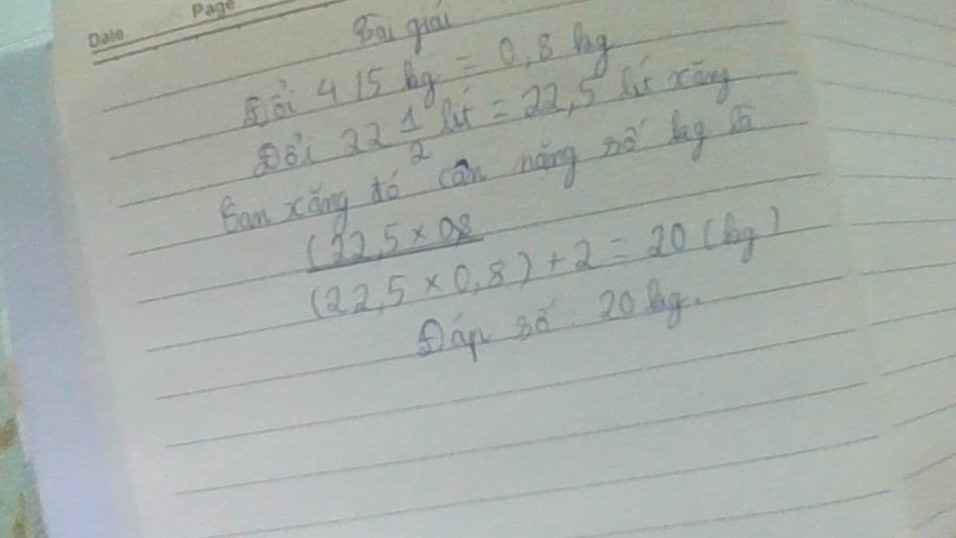 Date Page
Bài giải
Đổi 415 kg = 0,8 kg
Đổi 22 1/2 lít = 22,5 lít xăng
Can xăng đó cân nặng số kg là
(22,5 × 08
(22,5 × 0,8) + 2 = 20 (kg)
Đáp số : 20 kg.